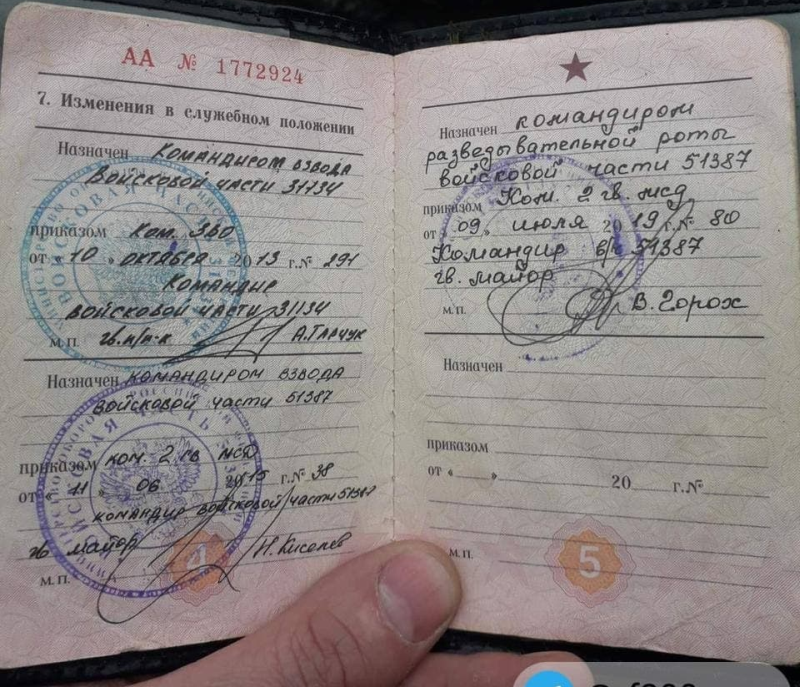 АА № 1772924
7. Изменения в служебном положении
Назначен командиром взвода
войсковой части 31134
приказом Ком. ЗВО
от «10» октября 2013 г. № 291
Командир
войсковой части 31134
м.п. гв. п/п-к А. Гарчук
Назначен командиром взвода
войсковой части 51387
приказом ком. 2 гв мсд
от «11» 06 2015 г. № 38
командир войсковой части 51387
гв майор Н. Киселев
м.п.
4
Назначен командиром
разведывательной роты
войсковой части 51387
приказом Ком. 2 гв. мсд
от «09» июля 2019 г. № 80
Командир в/ч 51387
гв. майор
м.п. В. Горох
Назначен
приказом
от « » 20 г. №
м.п.
5